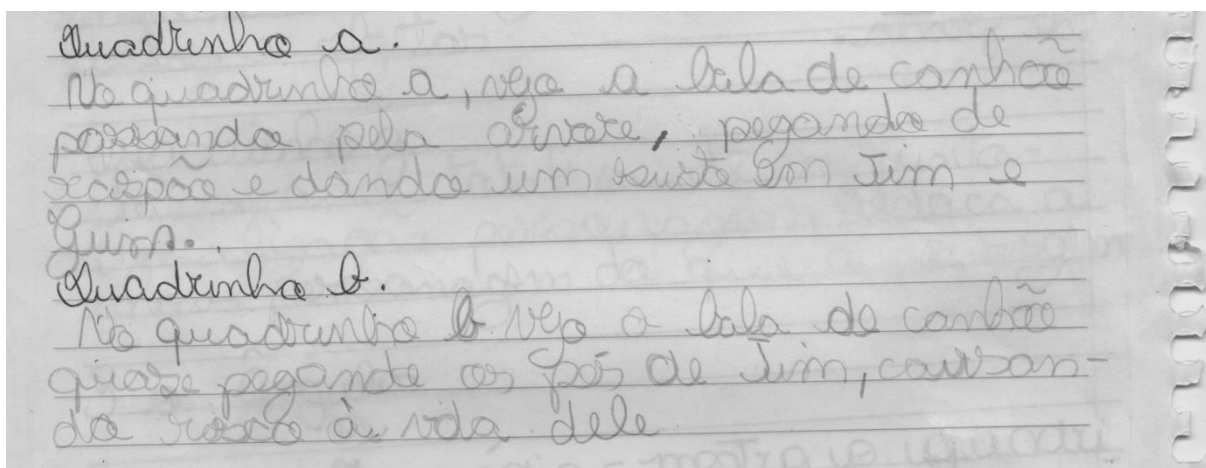 Quadrinho a.
No quadrinho a, vejo a bala de canhão
passando pela árvore, pegando de
raspão e dando um susto em Jim e
Guim.
Quadrinho b.
No quadrinho b vejo a bala de canhão
quase pegando os pés de Jim, causan-
do risco à vida dele